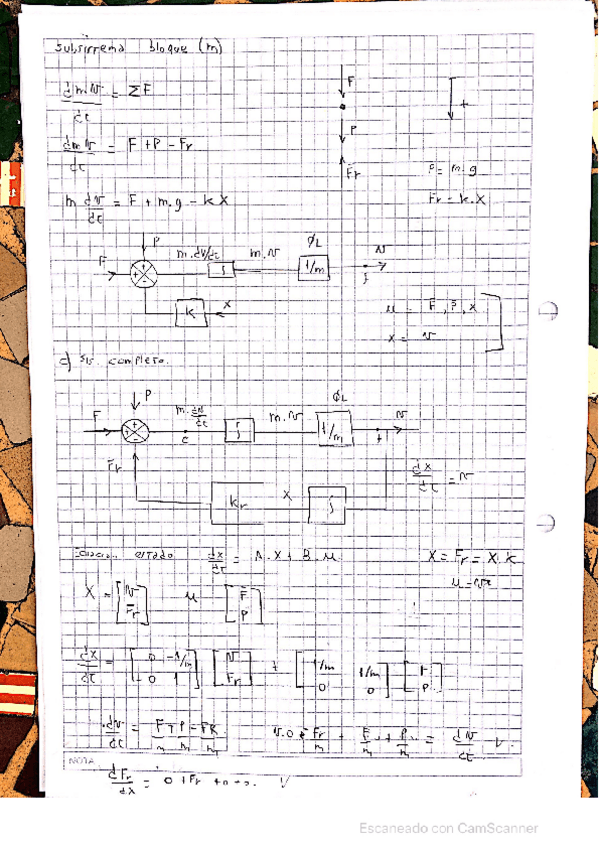 Subsistema bloque (m)
dmv/dt = ΣF
F
+
dmv/dt = F + P - Fr
P
Fr
P = m.g
m dv/dt = F + m.g - k x
Fr = k.x
P
F
m.dv/dt
∫
m.v
φL
1/m
v
k
x
u = F, P, x
x = v
c) Sis. completo.
P
F
m.dv/dt
c
∫
m.v
φL
1/m
v
Fr
kr
x
∫
dx/dt = v
estado dx/dt = A.x + B.u
x = Fr = x.k
x = [v Fr] u [F P]
dx/dt = [0 -1/m; 0 1] [v Fr] + [1/m 1/m; 0 0] [F P]
dv/dt = F+P-FR / m m m
v.0 Fr/m + F/m + P/m = dv/dt
NOTA
dFr/dx = 0 + Fr + 0
Escaneado con CamScanner